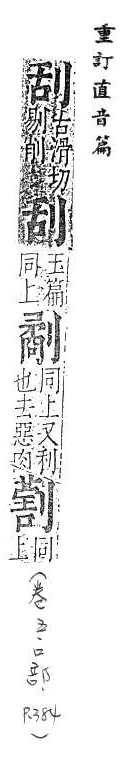 重訂直音篇
刮
古滑切
剔削
刮
玉篇
同上
劀
同上又利
也去惡肉
同
上
(卷五·口部, P.384)